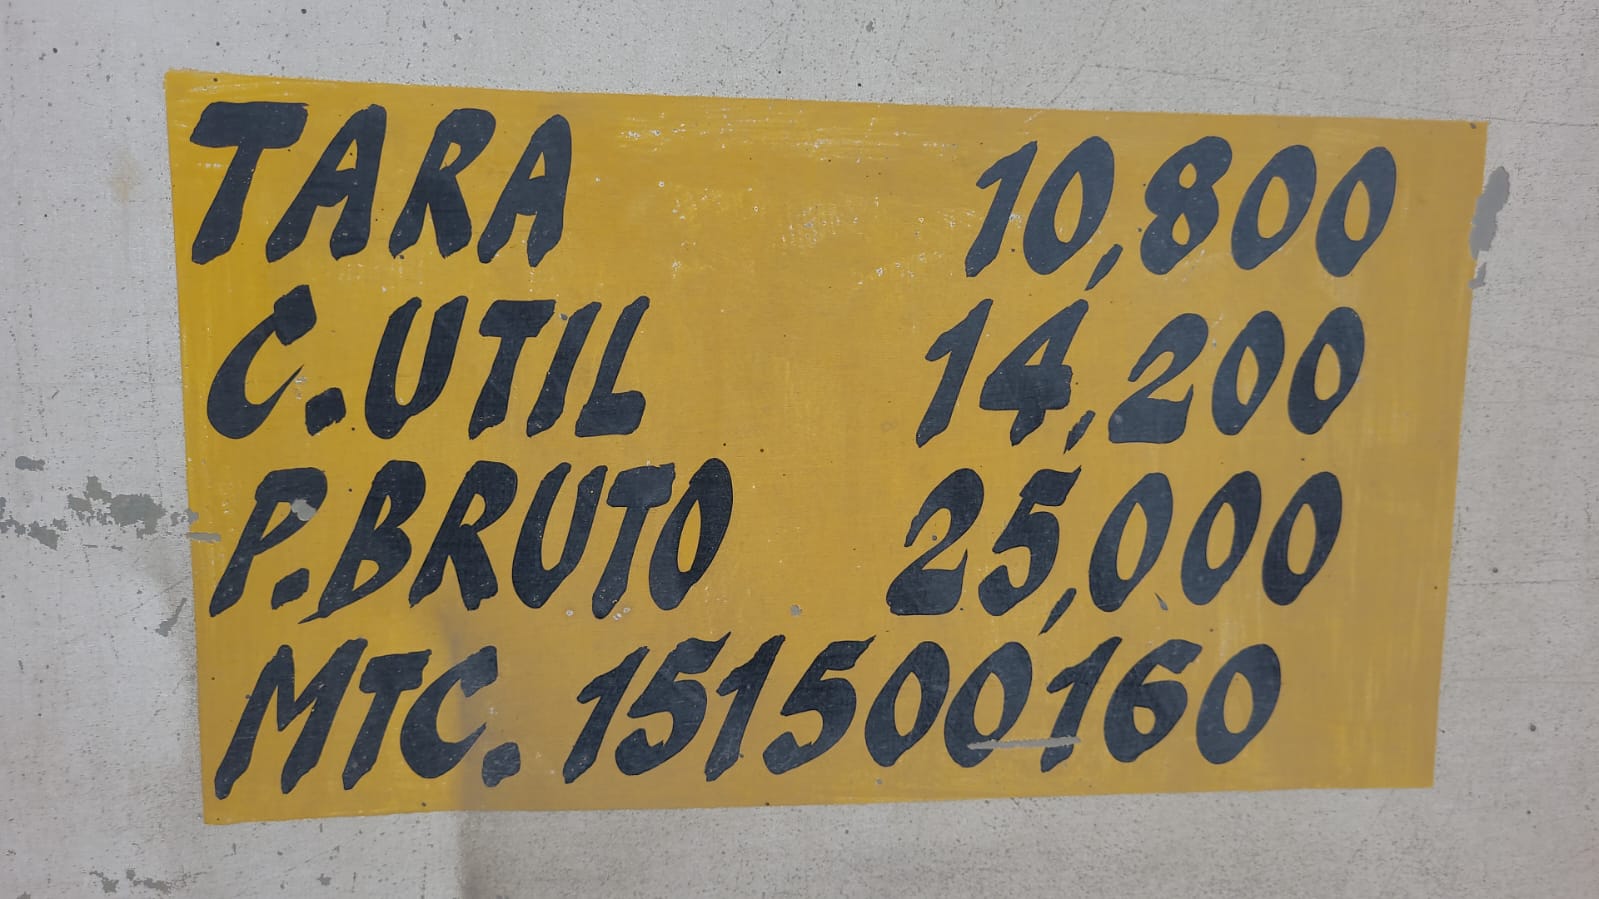 TARA 10,800
C.UTIL 14,200
P.BRUTO 25,000
MTC. 151500160